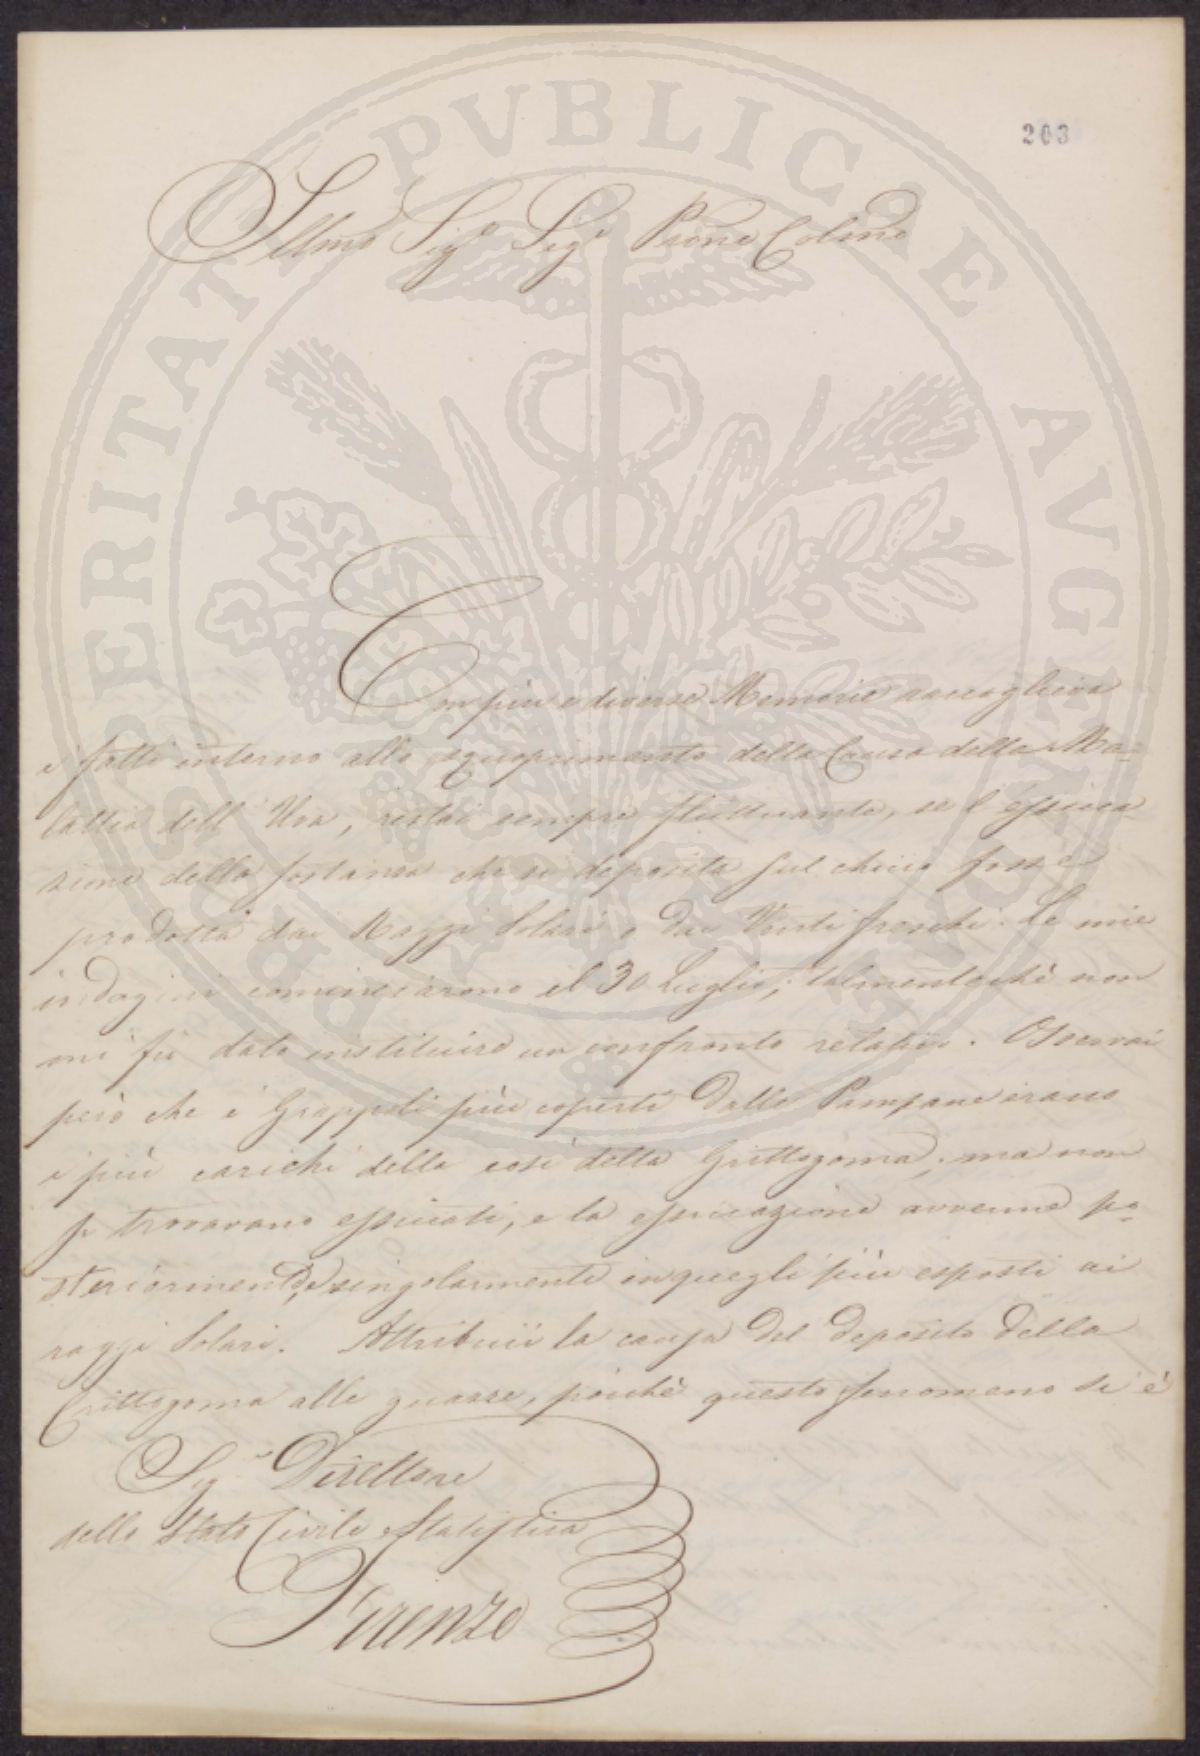 203
Illmo Sigre Sigre Prone Colmo
Compiu e diverse Memorie raccoglieva
i fatti intorno allo scuoprimento della Causa della Ma-
lattia dell' Uva, restai sempre fluttuante, se l'essicca
zione della sostanza che si deposita sul chicco fosse
prodotta dai Raggi Solari o dai Venti freschi. Le mie
indagini cominciarono il 30 Luglio, talmentechè non
mi fu dato instituire un confronto relativo. Osservai
però che i Grappoli più coperti dalle Pampane erano
i più carichi della così detta Grittogoma, ma non
si trovavano essiccati, e la essiccazione avvenne po-
steriormente, e singolarmente in quegli più esposti ai
raggi Solari. Attribuii la causa del deposito della
Crittogoma alle guazze, poichè questo fenomeno si è
Sigr Direttore
dello Stato Civile e Statistica
Firenze
PROSPERITATI PVBLICAE AVGENDAE